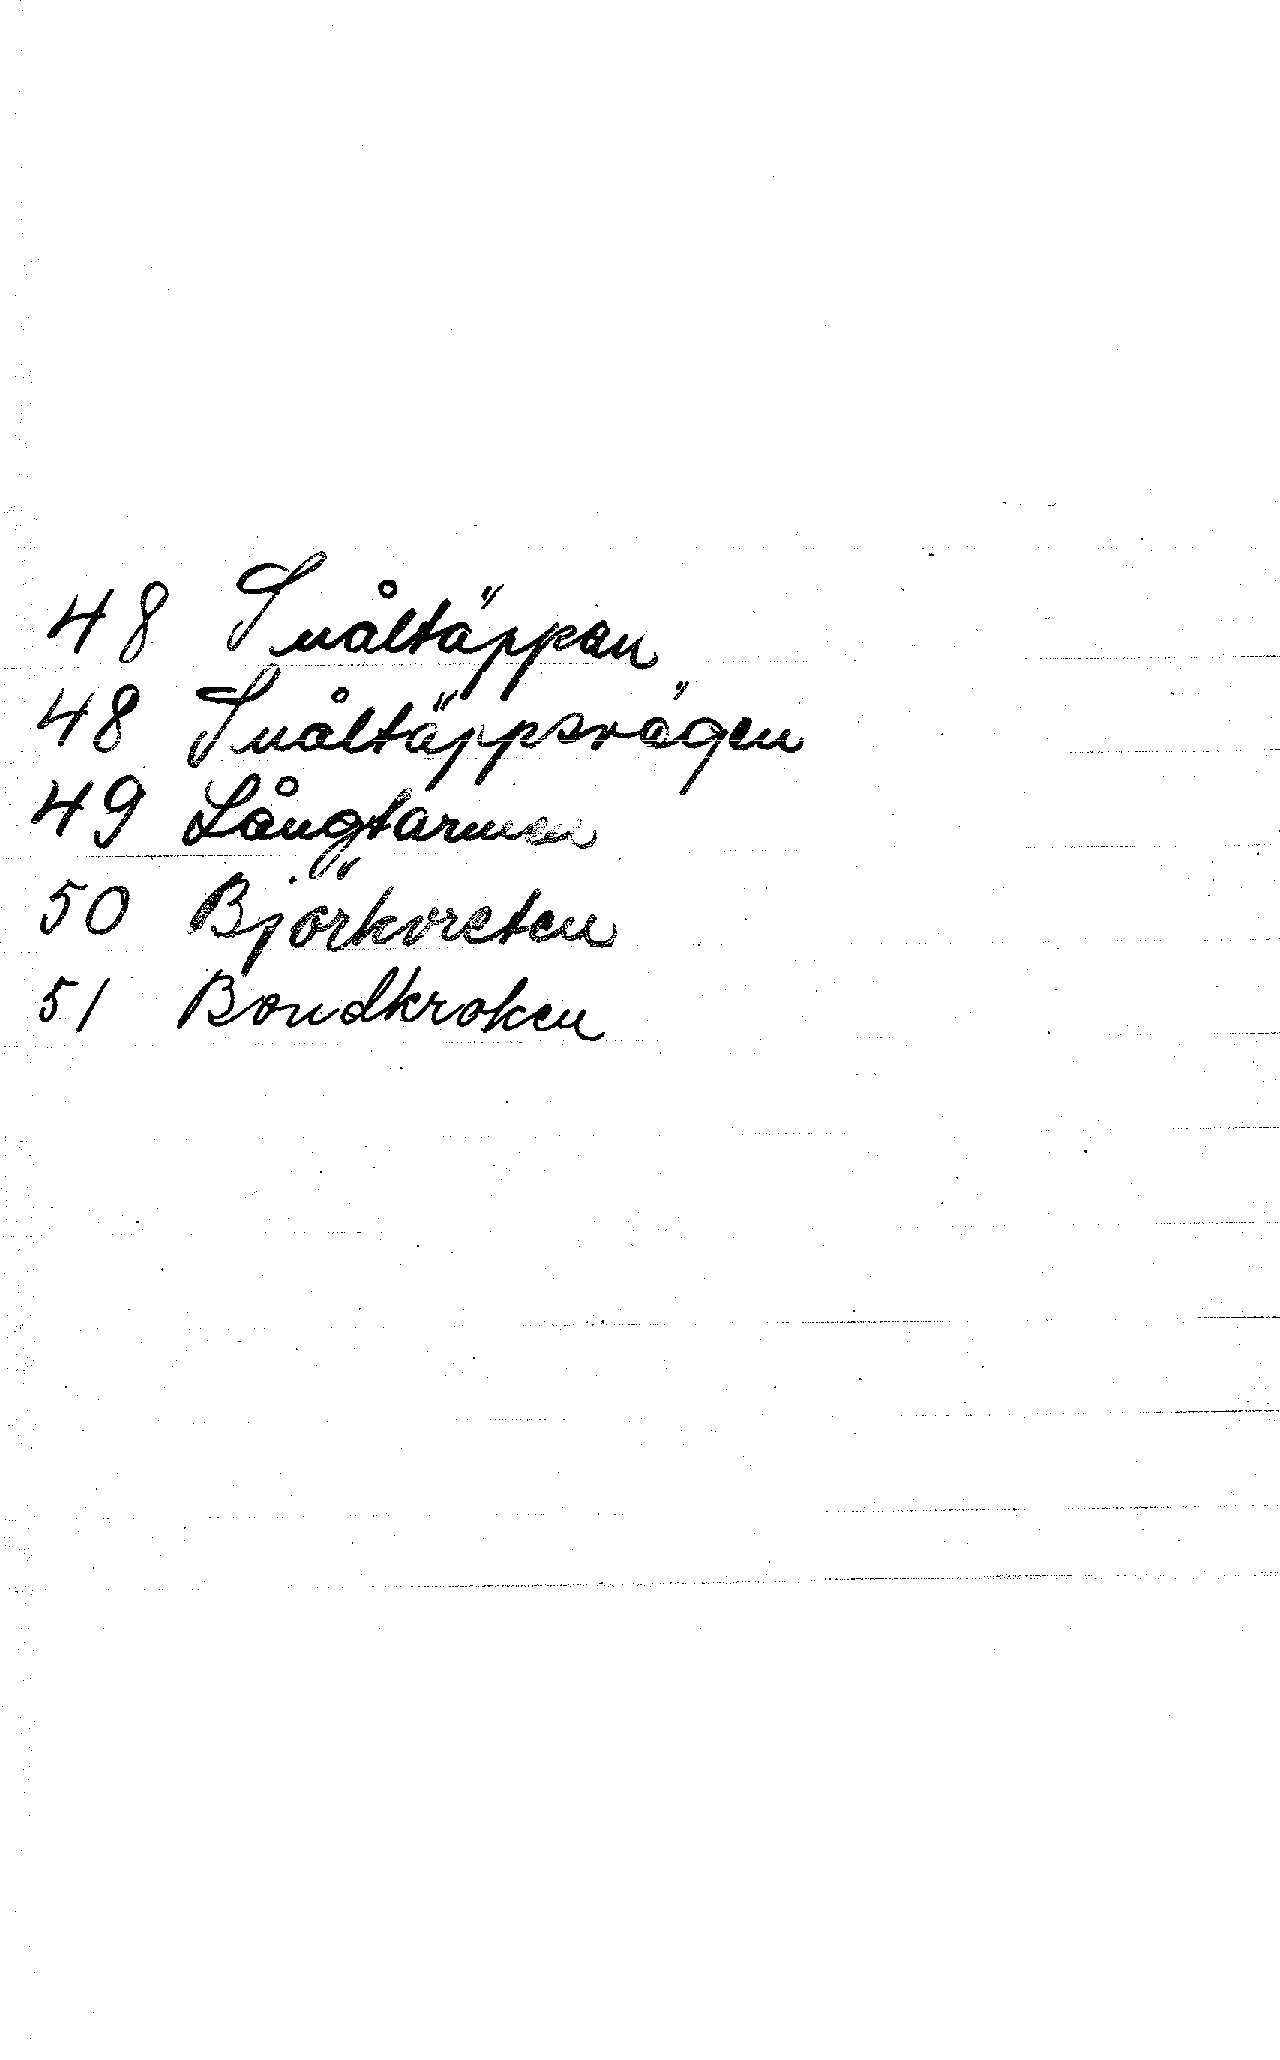 48 Snåltäppan
48 Snåltäppsvägen
49 Långtarmen
50 Björkvreten
51 Bondkroken